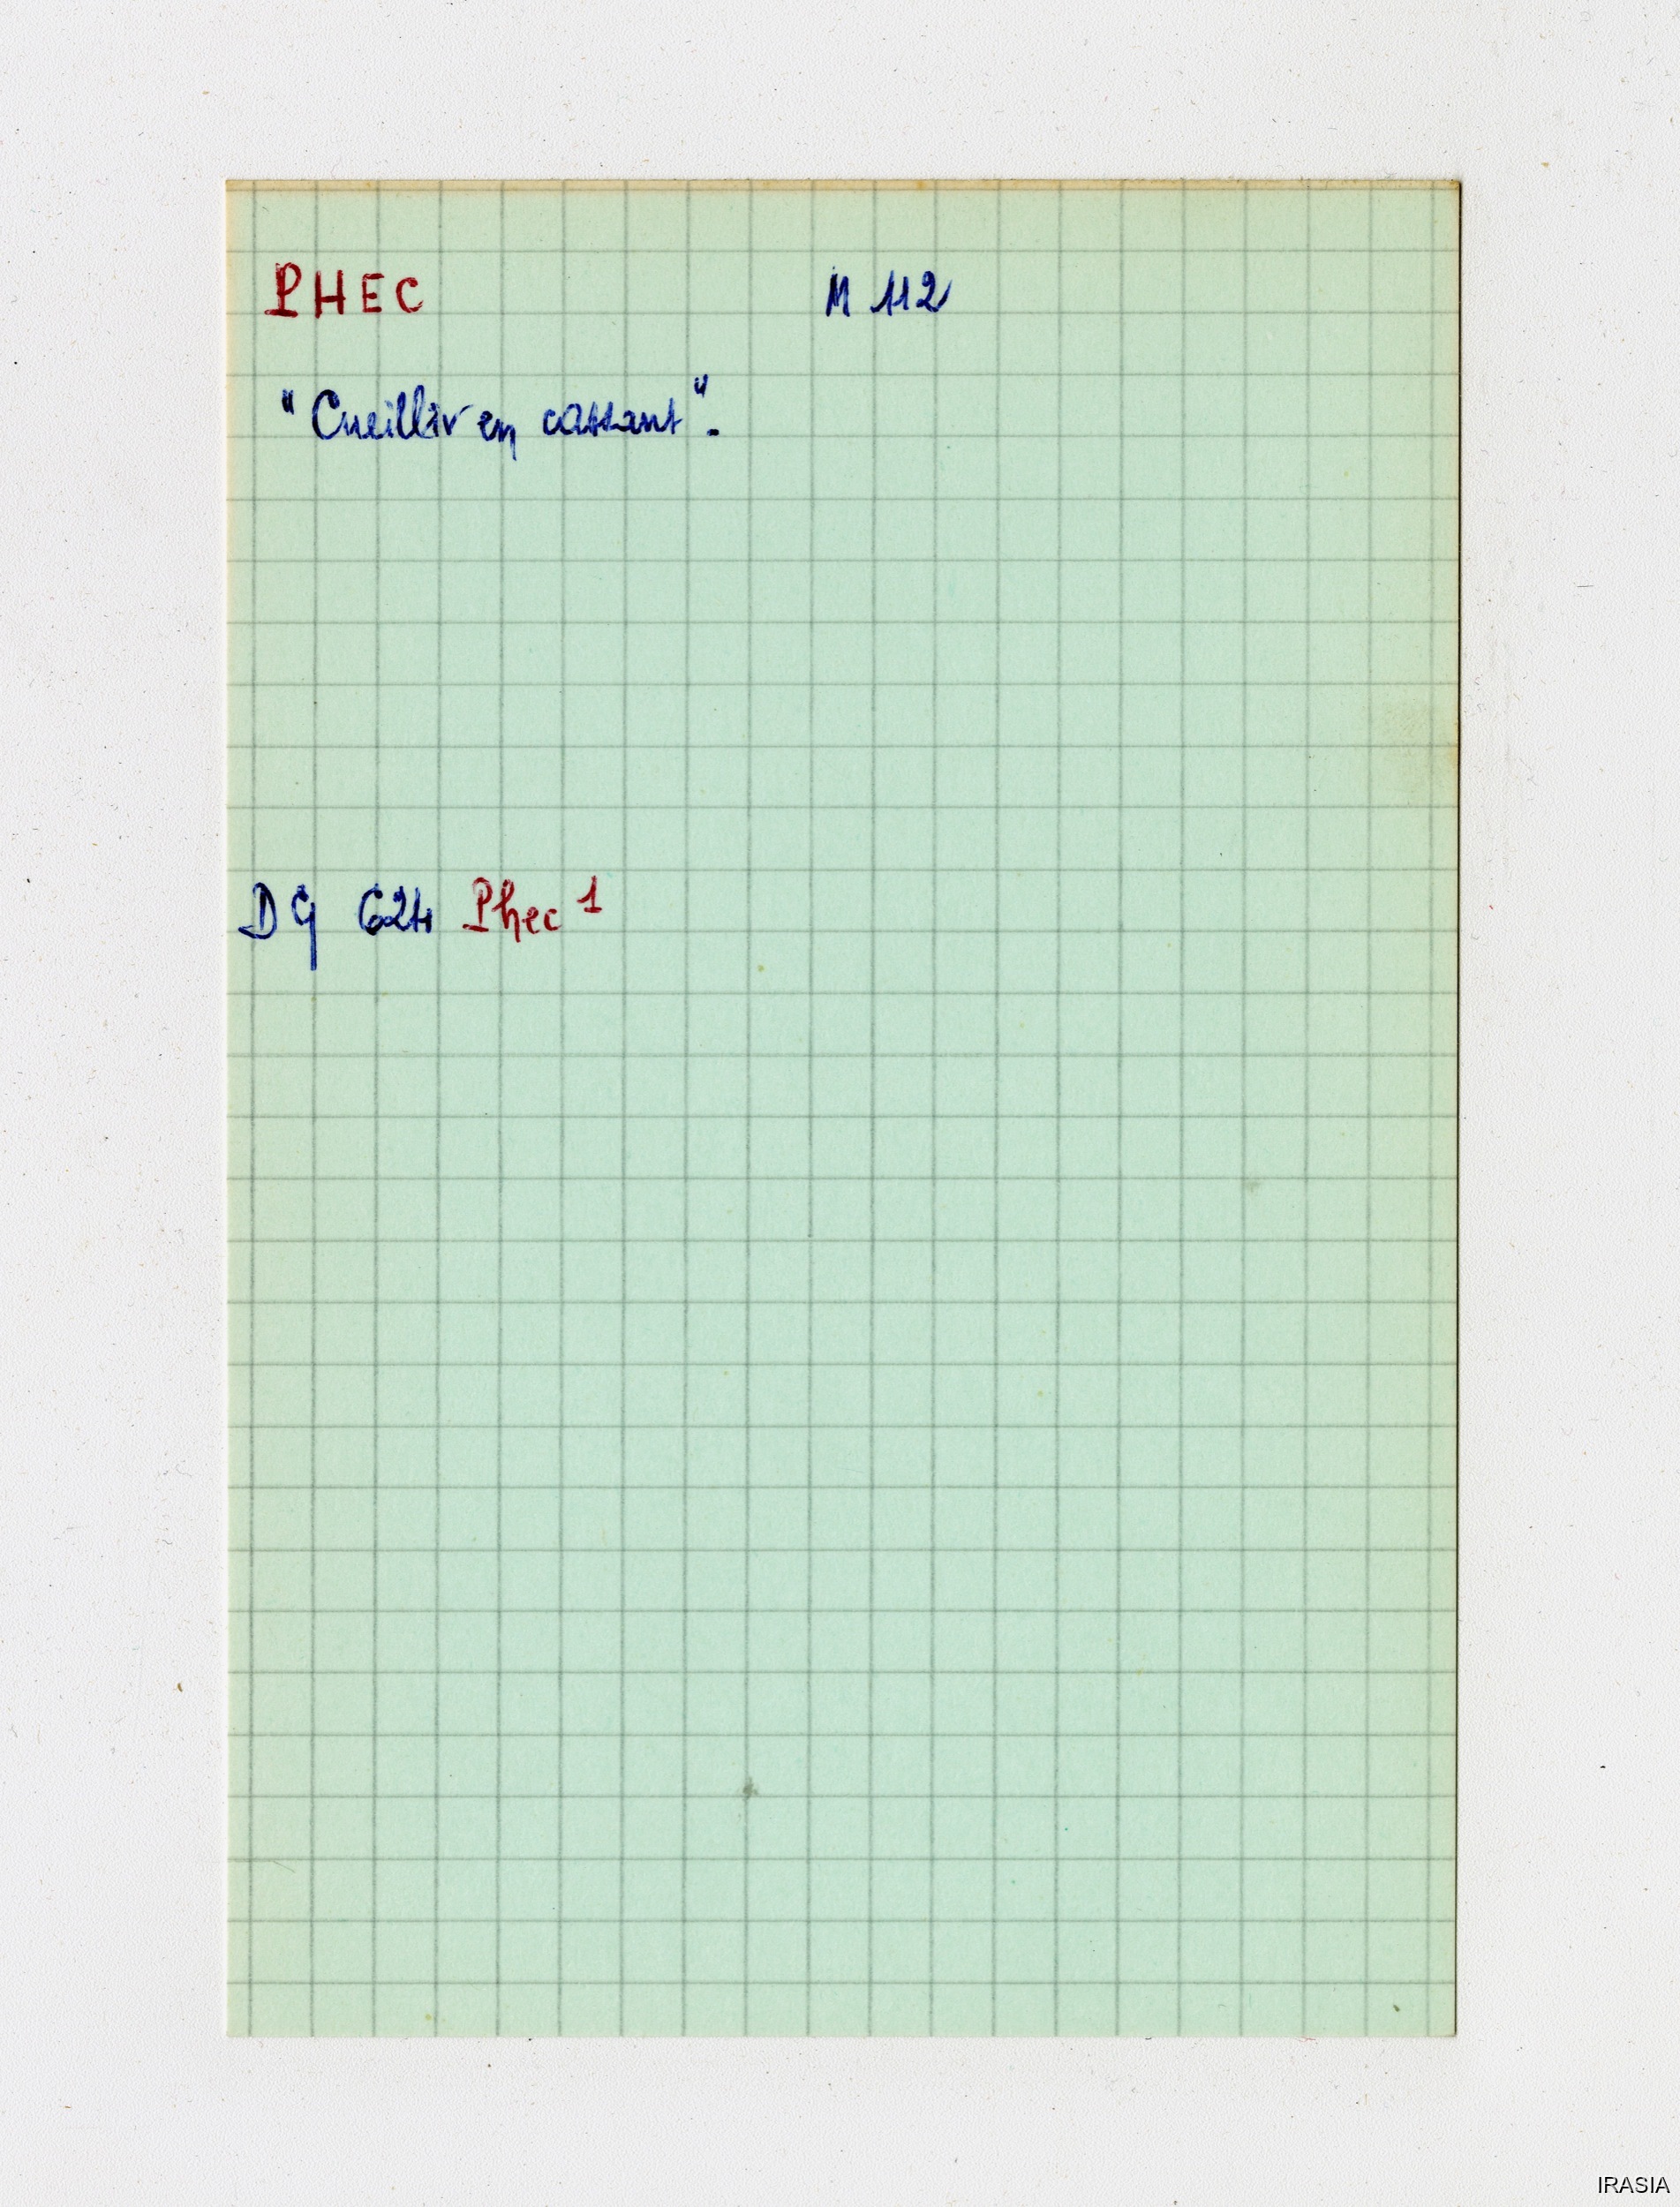 PHEC M 112
"Cueillir en cassant".
DG 624 Phec 1
IRASIA